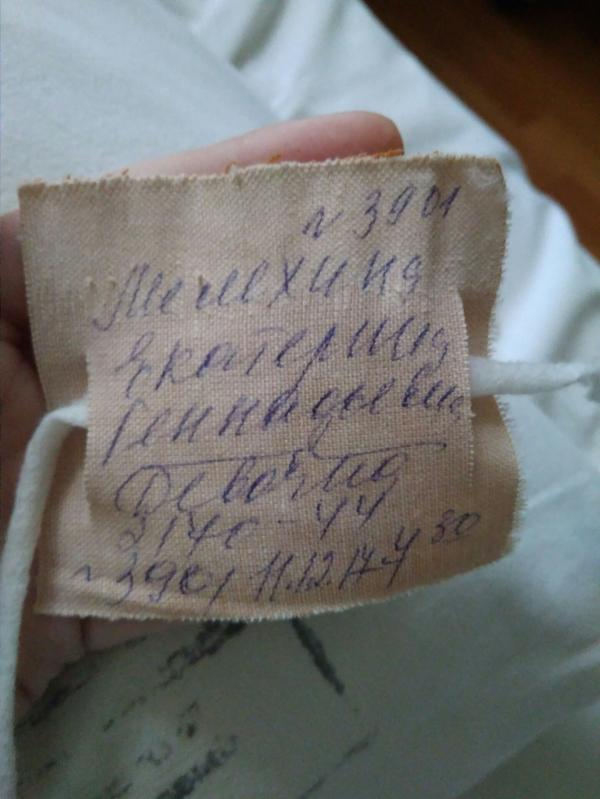 № 3901
Мелехина
Екатерина
Геннадьевна
Девочка
3140-44
№3901 11.12.17 4 30